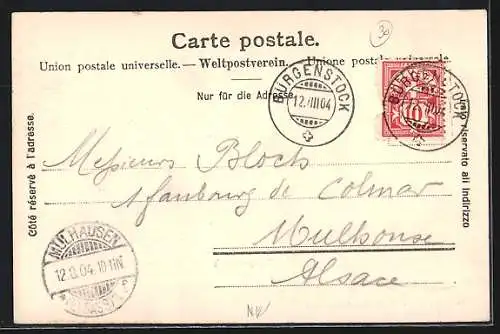 30
Carte postale.
Union postale universelle. — Weltpostverein. — Unione postale universale
Nur für die Adresse
BÜRGENSTOCK
12.VIII.04
BÜRGENSTOCK
10
Côté réservé à l'adresse.
Lato riservato all indirizzo
Messieurs Bloch
1 faubourg de Colmar
Mulhouse
Alsace
MÜLHAUSEN
12.8.04.10-11N